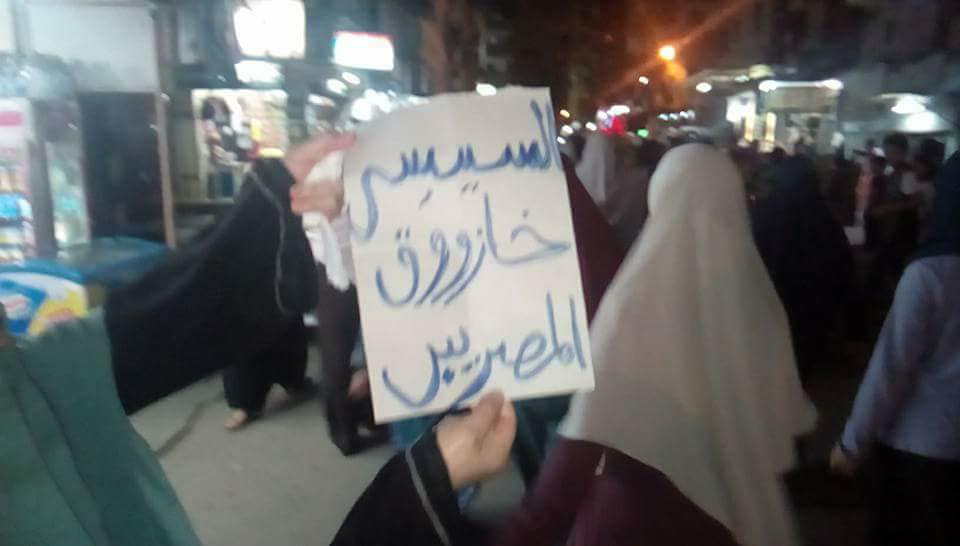 السيسى
خازووق
المصريين